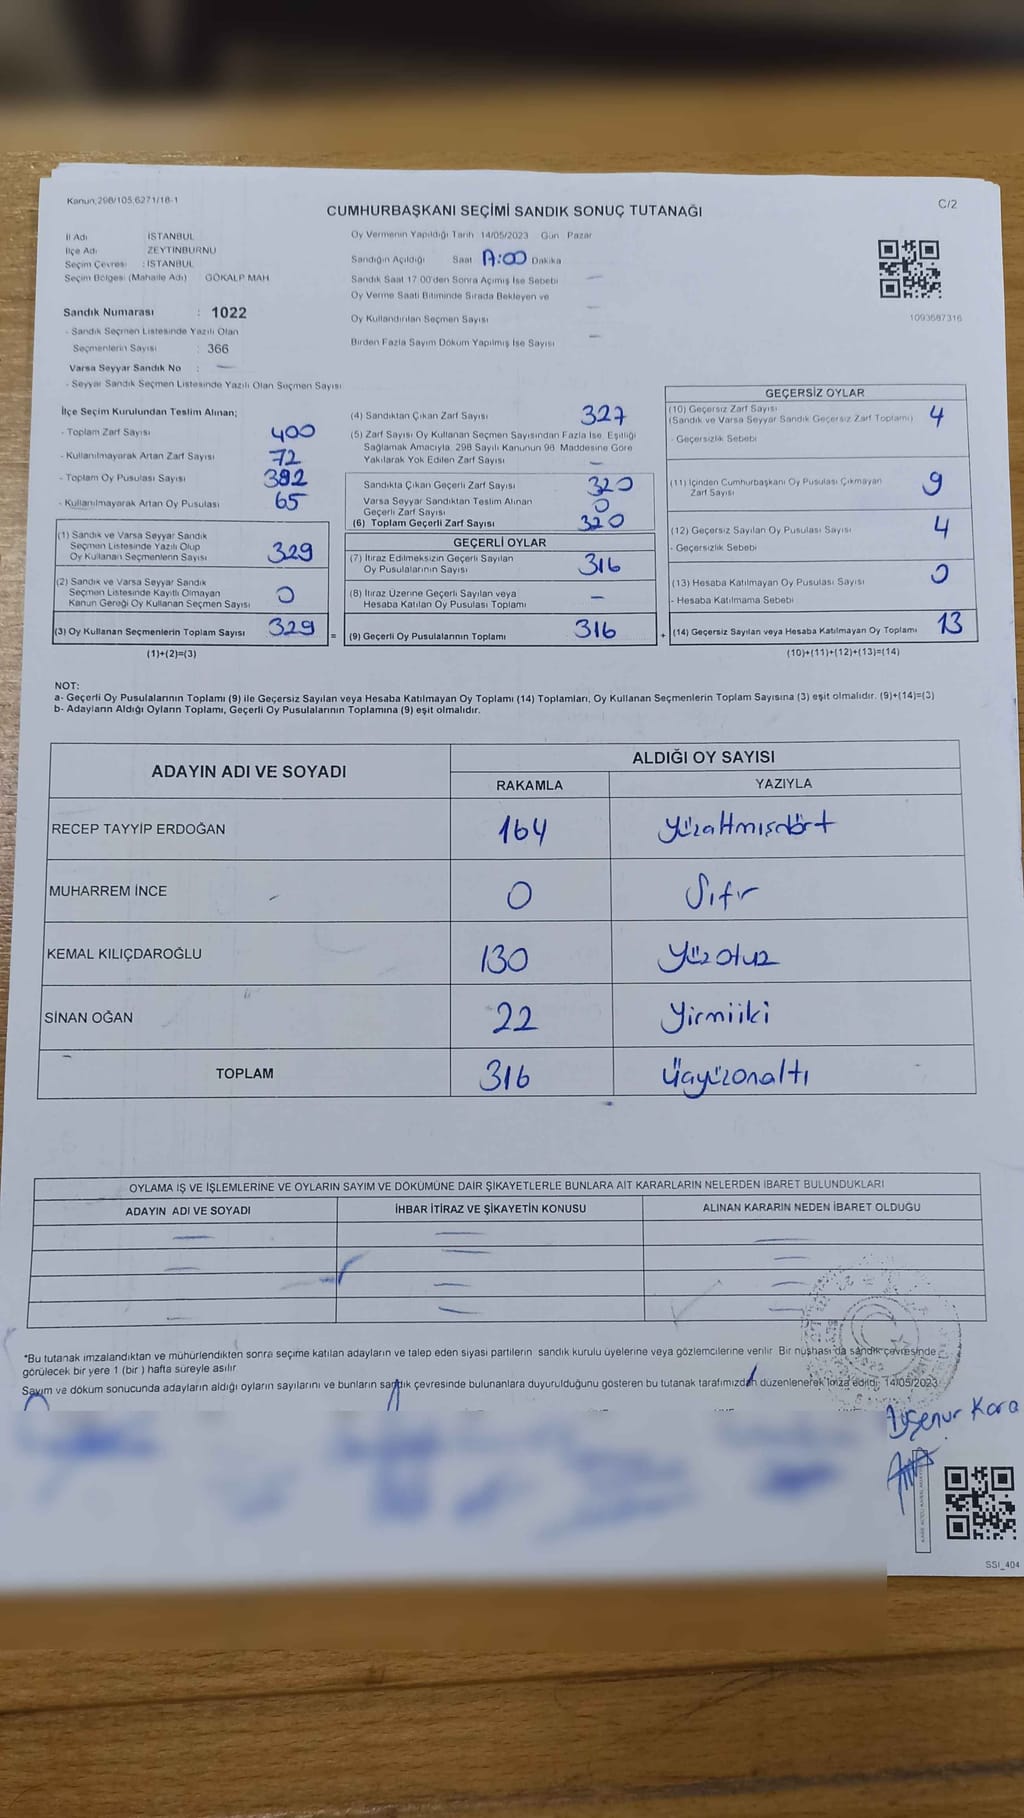 Kanun;298/105,6271/18-1
C/2
CUMHURBAŞKANI SEÇİMİ SANDIK SONUÇ TUTANAĞI
İl Adı İSTANBUL
İlçe Adı ZEYTİNBURNU
Seçim Çevresi : İSTANBUL
Seçim Bölgesi (Mahalle Adı) GÖKALP MAH
Oy Vermenin Yapıldığı Tarih 14/05/2023 Gün Pazar
Sandığın Açıldığı Saat :00 Dakika
Sandık Saat 17.00'den Sonra Açılmış İse Sebebi —
Oy Verme Saati Bitiminde Sırada Bekleyen ve
Oy Kullandırılan Seçmen Sayısı —
Birden Fazla Sayım Döküm Yapılmış İse Sayısı —
1093687316
Sandık Numarası : 1022
- Sandık Seçmen Listesinde Yazılı Olan
Seçmenlerin Sayısı : 366
Varsa Seyyar Sandık No : —
- Seyyar Sandık Seçmen Listesinde Yazılı Olan Seçmen Sayısı
İlçe Seçim Kurulundan Teslim Alınan;
- Toplam Zarf Sayısı 400
- Kullanılmayarak Artan Zarf Sayısı 72
- Toplam Oy Pusulası Sayısı
- Kullanılmayarak Artan Oy Pusulası 65
(1) Sandık ve Varsa Seyyar Sandık
Seçmen Listesinde Yazılı Olup
Oy Kullanan Seçmenlerin Sayısı 329
(2) Sandık ve Varsa Seyyar Sandık
Seçmen Listesinde Kayıtlı Olmayan
Kanun Gereği Oy Kullanan Seçmen Sayısı 0
(3) Oy Kullanan Seçmenlerin Toplam Sayısı 329
(1)+(2)=(3)
(4) Sandıktan Çıkan Zarf Sayısı 327
(5) Zarf Sayısı Oy Kullanan Seçmen Sayısından Fazla İse, Eşitliği
Sağlamak Amacıyla, 298 Sayılı Kanunun 98. Maddesine Göre
Yakılarak Yok Edilen Zarf Sayısı —
Sandıkta Çıkan Geçerli Zarf Sayısı 320
Varsa Seyyar Sandıktan Teslim Alınan
Geçerli Zarf Sayısı 0
(6) Toplam Geçerli Zarf Sayısı 320
GEÇERLİ OYLAR
(7) İtiraz Edilmeksizin Geçerli Sayılan
Oy Pusulalarının Sayısı 316
(8) İtiraz Üzerine Geçerli Sayılan veya
Hesaba Katılan Oy Pusulası Toplamı —
= (9) Geçerli Oy Pusulalarının Toplamı 316
GEÇERSİZ OYLAR
(10) Geçersiz Zarf Sayısı
(Sandık ve Varsa Seyyar Sandık Geçersiz Zarf Toplamı) 4
- Geçersizlik Sebebi
(11) İçinden Cumhurbaşkanı Oy Pusulası Çıkmayan
Zarf Sayısı 9
(12) Geçersiz Sayılan Oy Pusulası Sayısı 4
- Geçersizlik Sebebi
(13) Hesaba Katılmayan Oy Pusulası Sayısı 0
- Hesaba Katılmama Sebebi
+ (14) Geçersiz Sayılan veya Hesaba Katılmayan Oy Toplamı 13
(10)+(11)+(12)+(13)=(14)
NOT:
a- Geçerli Oy Pusulalarının Toplamı (9) ile Geçersiz Sayılan veya Hesaba Katılmayan Oy Toplamı (14) Toplamları, Oy Kullanan Seçmenlerin Toplam Sayısına (3) eşit olmalıdır. (9)+(14)=(3)
b- Adayların Aldığı Oyların Toplamı, Geçerli Oy Pusulalarının Toplamına (9) eşit olmalıdır.
ADAYIN ADI VE SOYADI
ALDIĞI OY SAYISI
RAKAMLA YAZIYLA
RECEP TAYYİP ERDOĞAN 164 yüzaltmışdört
MUHARREM İNCE 0 Sıfır
KEMAL KILIÇDAROĞLU 130 yüzotuz
SİNAN OĞAN 22 yirmiiki
TOPLAM 316 üçyüzonaltı
OYLAMA İŞ VE İŞLEMLERİNE VE OYLARIN SAYIM VE DÖKÜMÜNE DAİR ŞİKAYETLERLE BUNLARA AİT KARARLARIN NELERDEN İBARET BULUNDUKLARI
ADAYIN ADI VE SOYADI İHBAR İTİRAZ VE ŞİKAYETİN KONUSU ALINAN KARARIN NEDEN İBARET OLDUĞU
*Bu tutanak imzalandıktan ve mühürlendikten sonra seçime katılan adayların ve talep eden siyasi partilerin sandık kurulu üyelerine veya gözlemcilerine verilir. Bir nüshası da sandık çevresinde
görülecek bir yere 1 (bir ) hafta süreyle asılır.
Sayım ve döküm sonucunda adayların aldığı oyların sayılarını ve bunların sandık çevresinde bulunanlara duyurulduğunu gösteren bu tutanak tarafımızdan düzenlenerek imza edildi. 14/05/2023
Ayşenur Kara
SSI_404